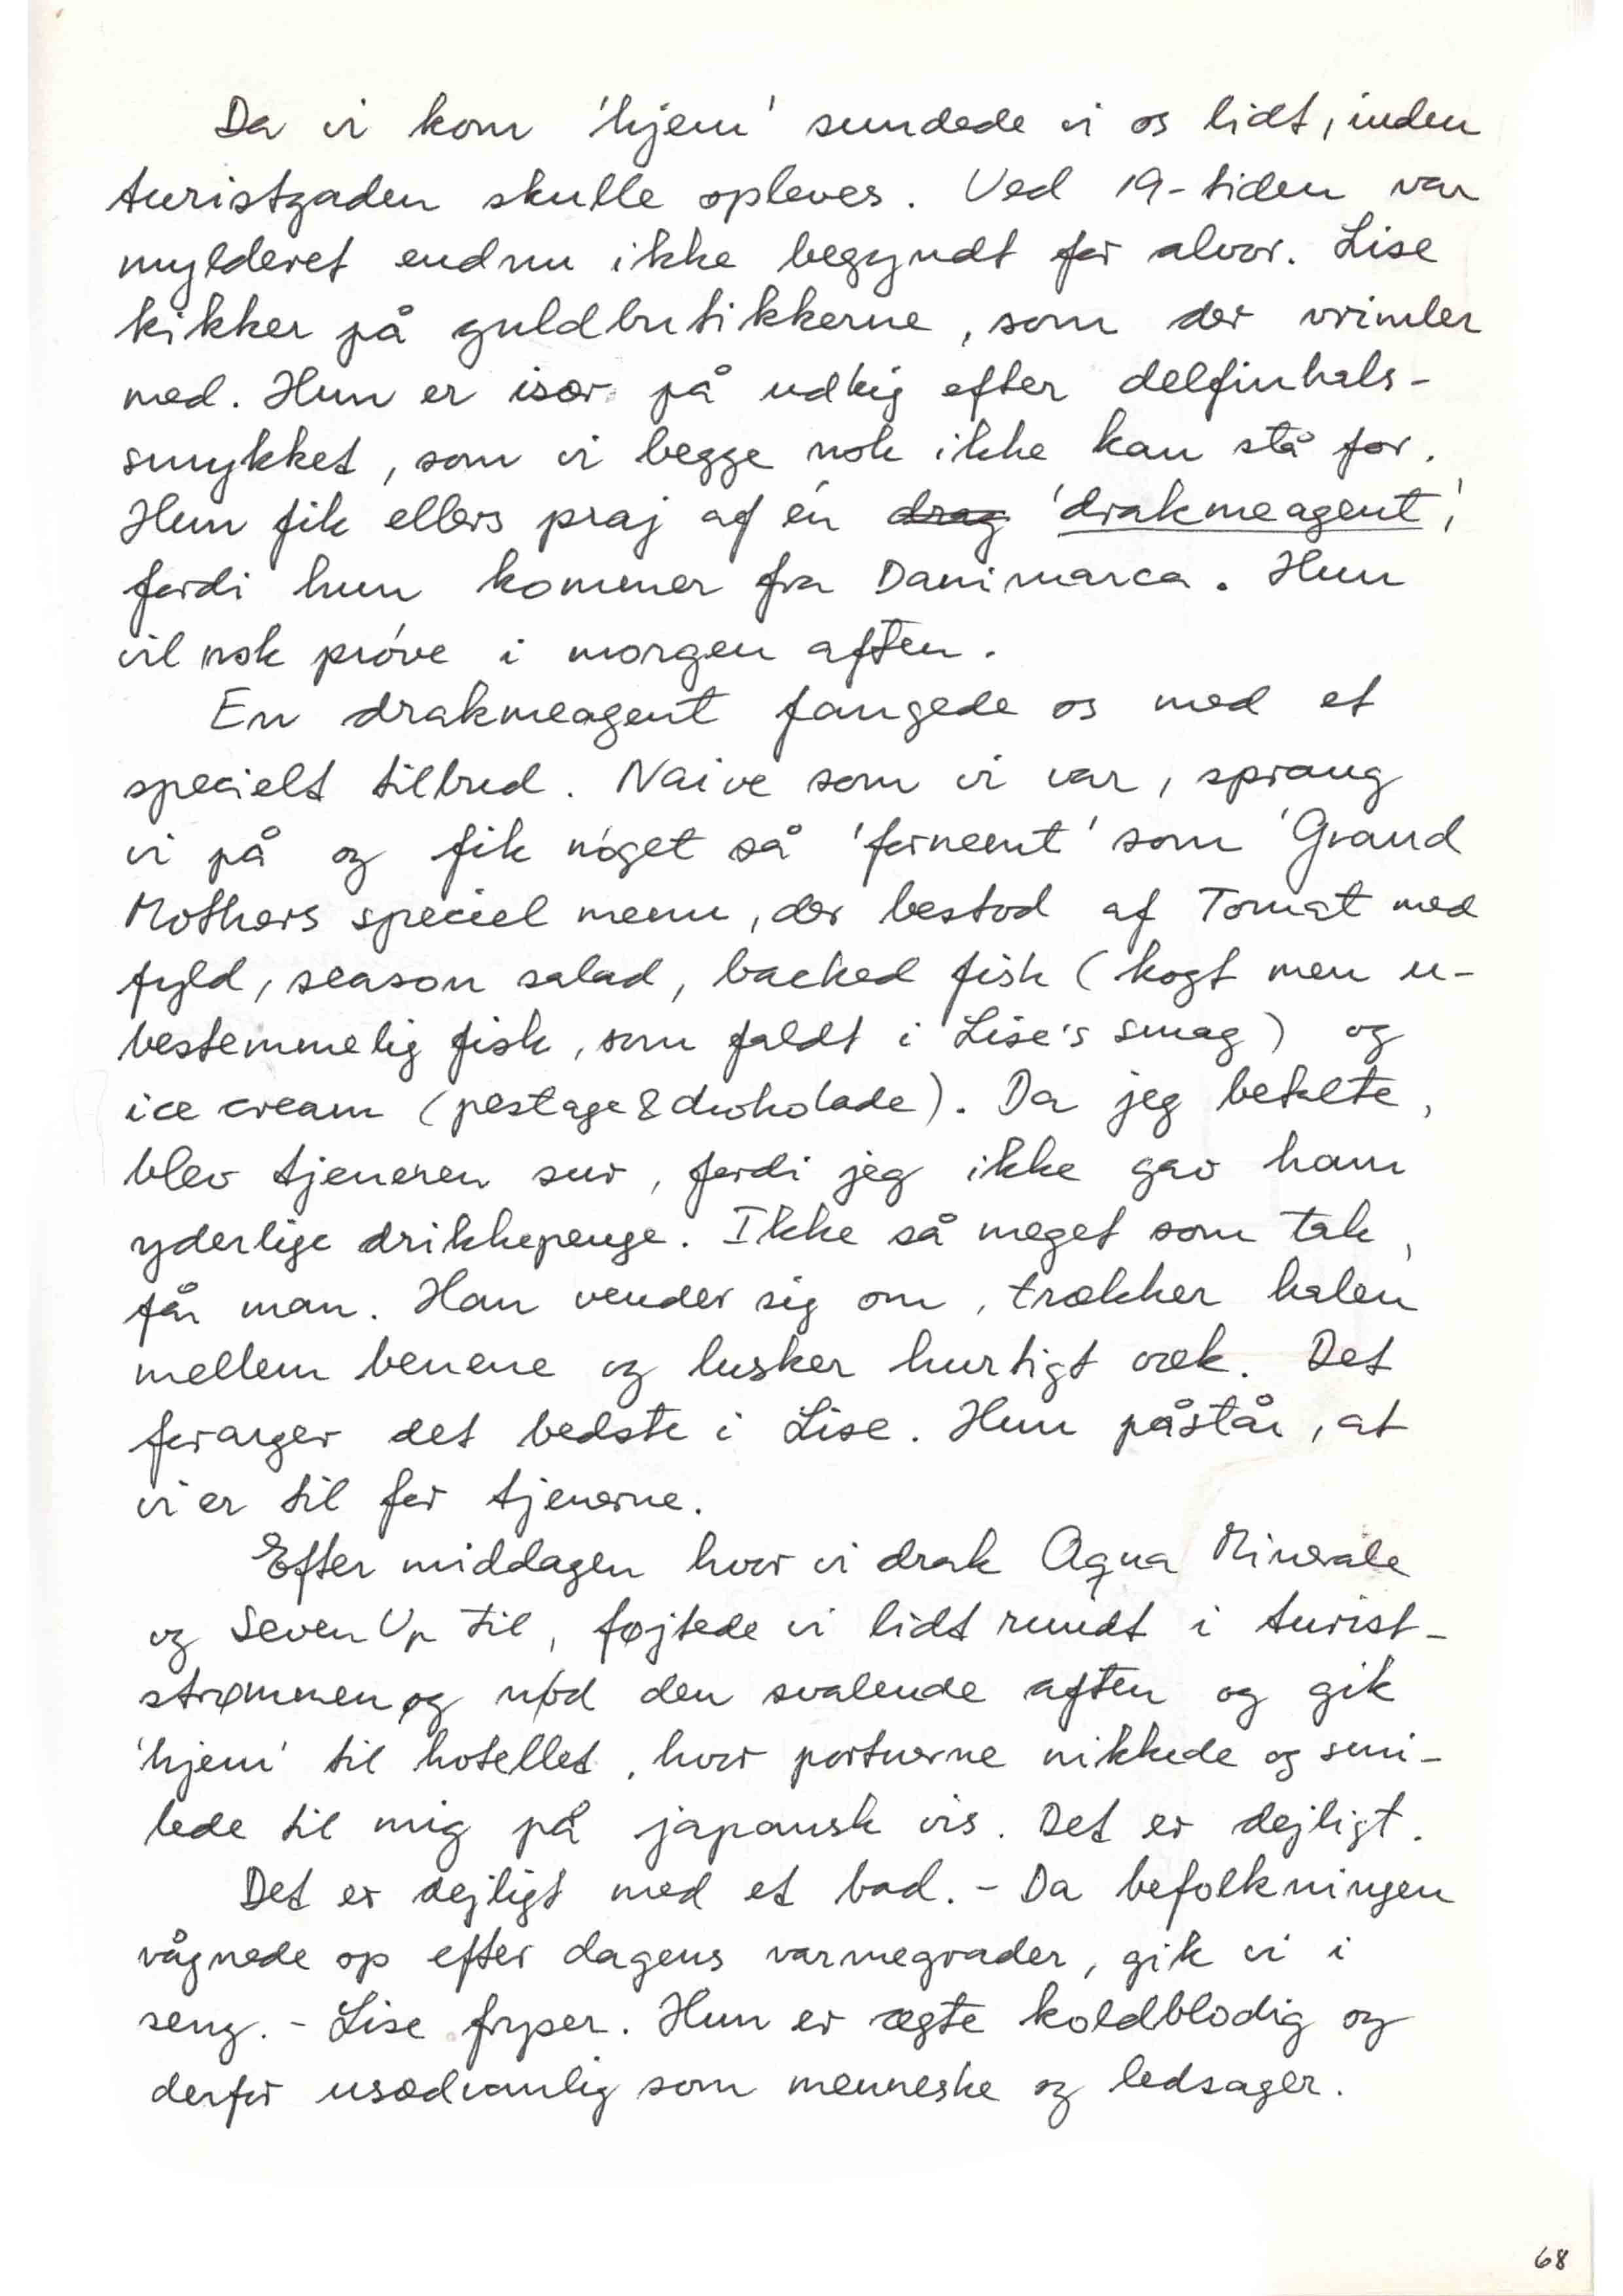 Da vi kom 'hjem' sundede vi os lidt, inden
turistgaden skulle opleves. Ved 19-tiden var
mylderet endnu ikke begyndt for alvor. Lise
kikker på guldbutikkerne, som der vrimler
med. Hun er især på udkig efter delfinhals-
smykket, som vi begge nok ikke kan stå for.
Hun fik ellers praj af én drag 'drakmeagent',
fordi hun kommer fra Danimarca. Hun
vil nok prøve i morgen aften.
En drakmeagent fangede os med et
specielt tilbud. Naive som vi var, sprang
vi på og fik nóget så 'fornemt' som 'Grand
Mothers speciel menu, der bestod af Tomat med
fyld, season salad, backed fish (kogt men u-
bestemmelig fisk, som faldt i Lise's smag) og
ice cream (pestage & chokolade). Da jeg betalte,
blev tjeneren sur, fordi jeg ikke gav ham
yderlige drikkepenge. Ikke så meget som tak,
får man. Han vender sig om, trækker halen
mellem benene og lusker hurtigt væk. Det
forarger det bedste i Lise. Hun påstår, at
vi er til for tjenerne.
Efter middagen hvor vi drak Aqua Minerale
og Seven Up til, føjtede vi lidt rundt i turist-
strømmen og nød den svalende aften og gik
'hjem' til hotellet, hvor portnerne nikkede og smi-
lede til mig på japansk vis. Det er dejligt.
Det er dejligt med et bad. - Da befolkningen
vågnede op efter dagens varmegrader, gik vi i
seng. - Lise fryser. Hun er ægte koldblodig og
derfor usædvanlig som menneske og ledsager.
68